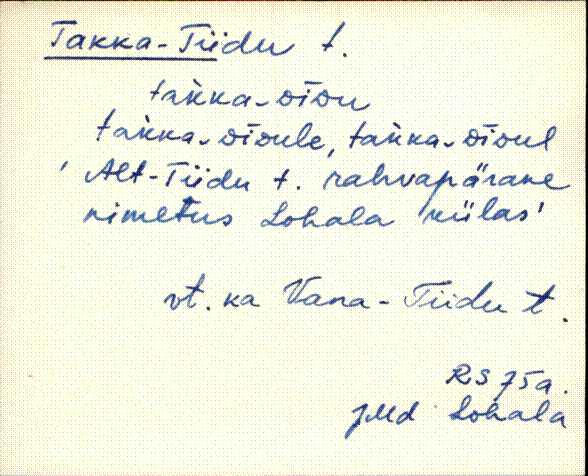 Takka-Tiidu t.
tak̀ka-ᴅīᴅu
tak̀ka-ᴅīᴅule, tak̀ka-ᴅīᴅul
' Alt-Tiidu t. rahvapärane
nimetus Lohala külas'
vt. ka Vana-Tiidu t.
RS 75a.
JMd Lohala